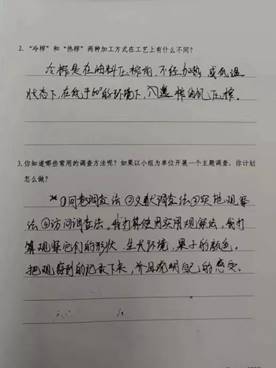 2.“冷榨”和“热榨”两种加工方式在工艺上有什么不同？
冷榨是在的料压榨前，不经加热或低温
状态下，在低于的的环境下，入榨机压榨。
3.你知道哪些常用的调查方法呢？如果以小组为单位开展一个主题调查，你计划
怎么做？
①问卷调查法②文献调查法③实地观察
法④访问调查法。我打算使用实地观察法，我打
算观察它们的形状、生长环境、果子的颜色。
把观察到的记录下来，并且说明自己的感受。